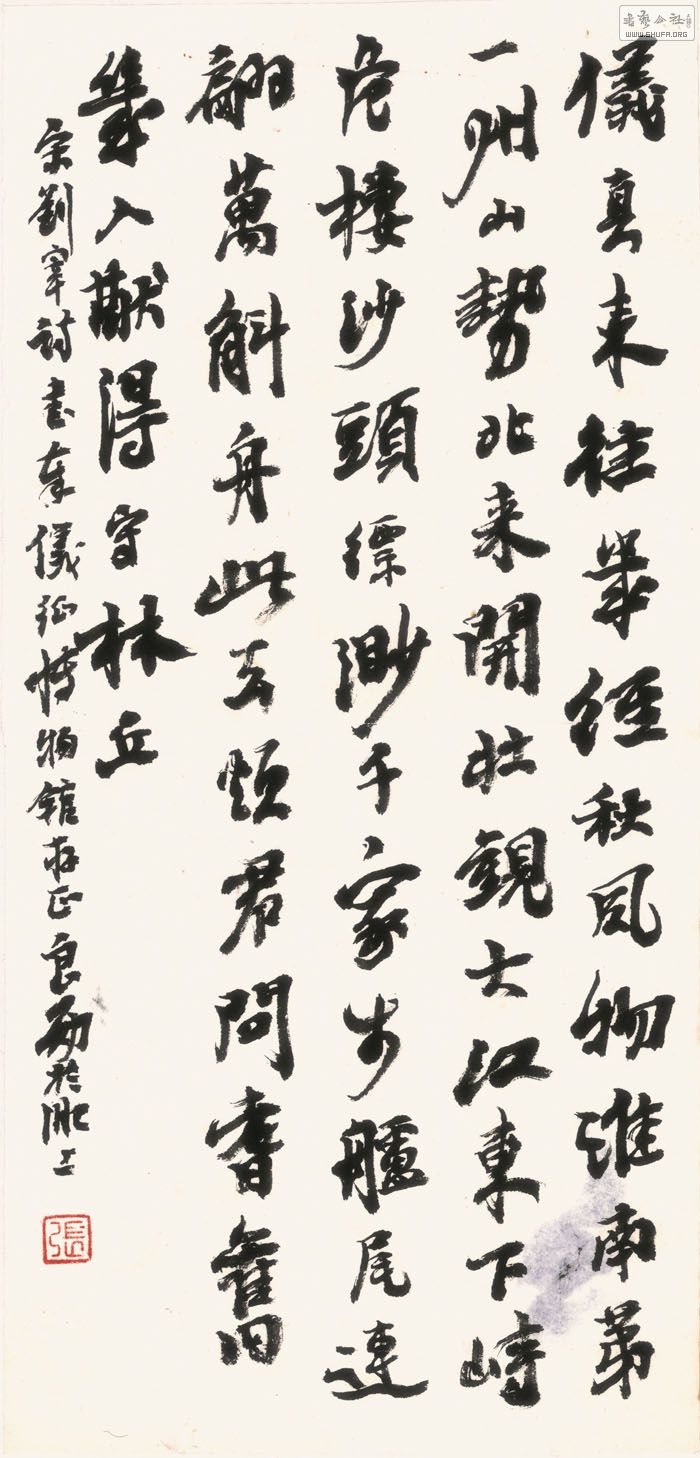 儀真来往幾經秋风物淮南第
一州山勢北来開壮觀大江東下峙
危樓沙頭縹渺千家市艫尾連
翩萬斛舟此去煩君問耆舊
幾人猷得守林丘
宋劉宰詩書奉儀征博物館存正良勛於淝上
張
書藝公社
WWW.SHUFA.ORG